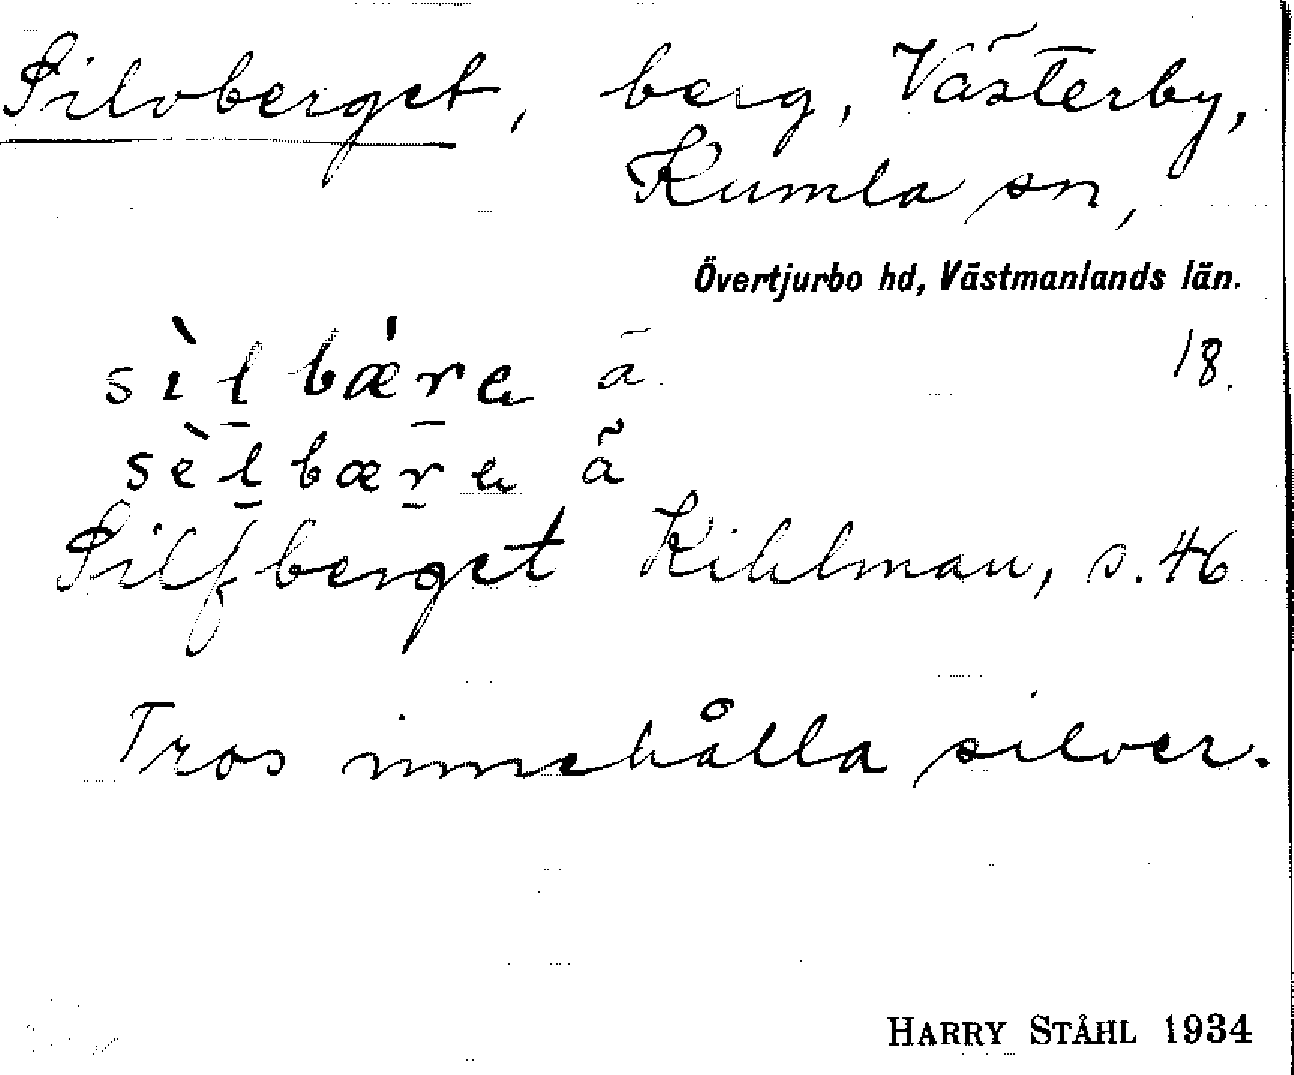 Silvberget, berg, Västerby,
Kumla sn,
Övertjurbo hd, Västmanlands län.
sìlbæ̀ra ä 18.
sèlbæra ã
Silfberget Kihlman, s. 46
Tros innehålla silver.
HARRY STÅHL 1934